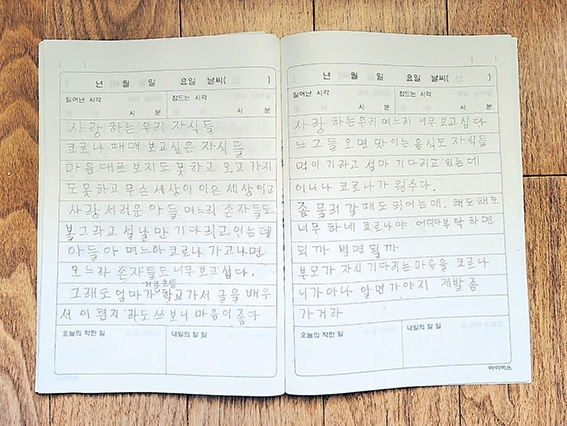 년 월 일 요일 날씨( )
일어난 시각 잠드는 시각
시 분 시 분
사랑 하는 우리 자식들
코로나 때매 보고싶은 자식들
마음대로 보지도 못하고 오고 가지
도 못하고 무슨 세상이 이은 세상이고
사랑 서러운 아들 며느리 손자들도
볼그라고 설날만 기다리고 인는데
아들아 며느아 코로나 가고나면
오느라 손자들도 너무 보고십다.
그래도 엄마가 학교가서 글을 배우
서 이 편지 라도 쓰보니 마음이 좋다
오늘의 착한 일 내일의 할 일
년 월 일 요일 날씨( )
일어난 시각 잠드는 시각
시 분 시 분
사랑 하는 우리 며느리 너무 보고 십다
느그들 오면 맛이는 음식도 자식들
먹이 기라고 설마 기다리고 있는데
이니나 코로나가 원수다.
좀 물러 갈 때도 되어는데. 해도해도
너무 하네 코로나야 어따 부탁 하면
되까 빌면 될까
부모가 자식 기다리는 마음을 코로나
니가 아나 알면 가야지 제발 좀
가거라
오늘의 착한 일 내일의 할 일
아이비스